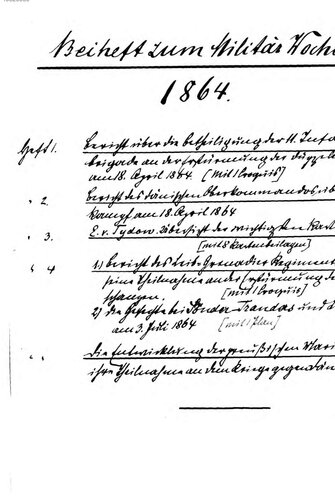 Beiheft zum Militär Woche
1864.
Heft 1. Bericht über die Betheiligung der 11. Infa
brigade an der Erstürmung der Düppele
am 18. April 1864. (Mit 1 Croquis)
" 2. Bericht des dänischen Oberkommandos üb
kampf am 18. April 1864
" 3. E. v. Sydow. Übersicht der wichtigsten Kart
[mit 8 Kartenbeilagen]
" 4 1.) Bericht des Leib-Grenadier Regiment
seine Theilnahme an der Erstürmung de
schanzen. [mit 1 Croquis]
2) die Gefechte bei Sönder Tranders und
am 3. Juli 1864 [mit 1 Plan]
" " Die Entwicklung der preußischen Mari
ihre Theilnahme an dem Kriege gegen Dän